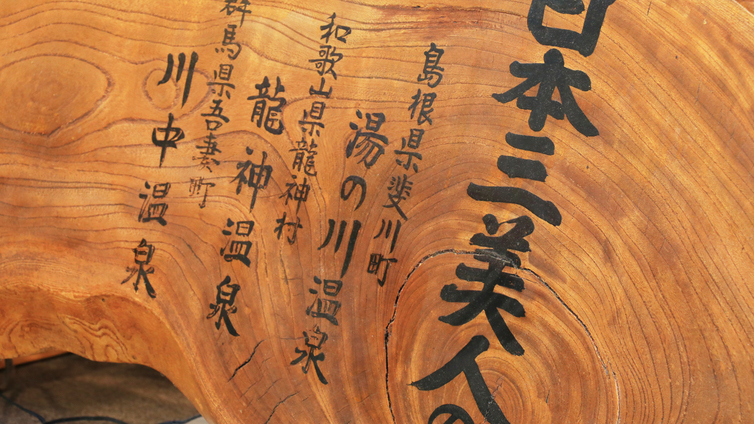 日本三美人の
島根県斐川町
湯の川温泉
和歌山県龍神村
龍神温泉
群馬県吾妻町
川中温泉